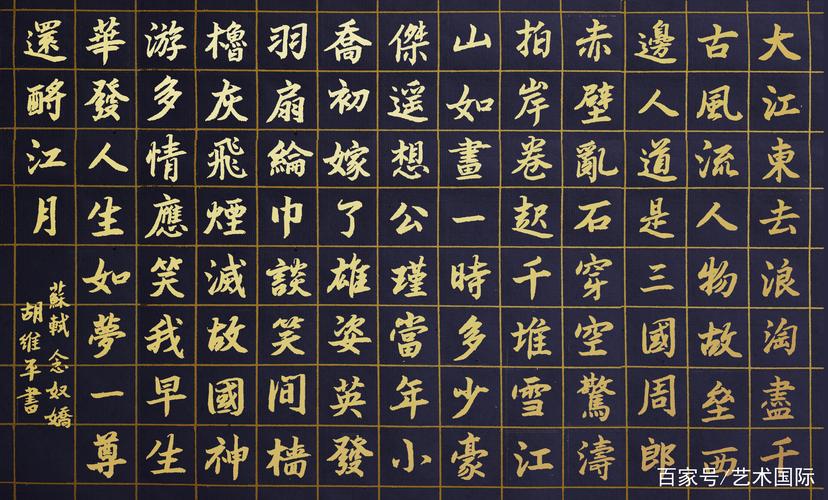 大江東去浪淘盡千
古風流人物故壘西
邊人道是三國周郎
赤壁亂石穿空驚濤
拍岸卷起千堆雪江
山如畫一時多少豪
傑遥想公瑾當年小
喬初嫁了雄姿英發
羽扇綸巾談笑間檣
櫓灰飛煙滅故國神
游多情應笑我早生
華發人生如夢一尊
還酹江月
蘇軾念奴嬌
胡維平書
百家号/艺术国际